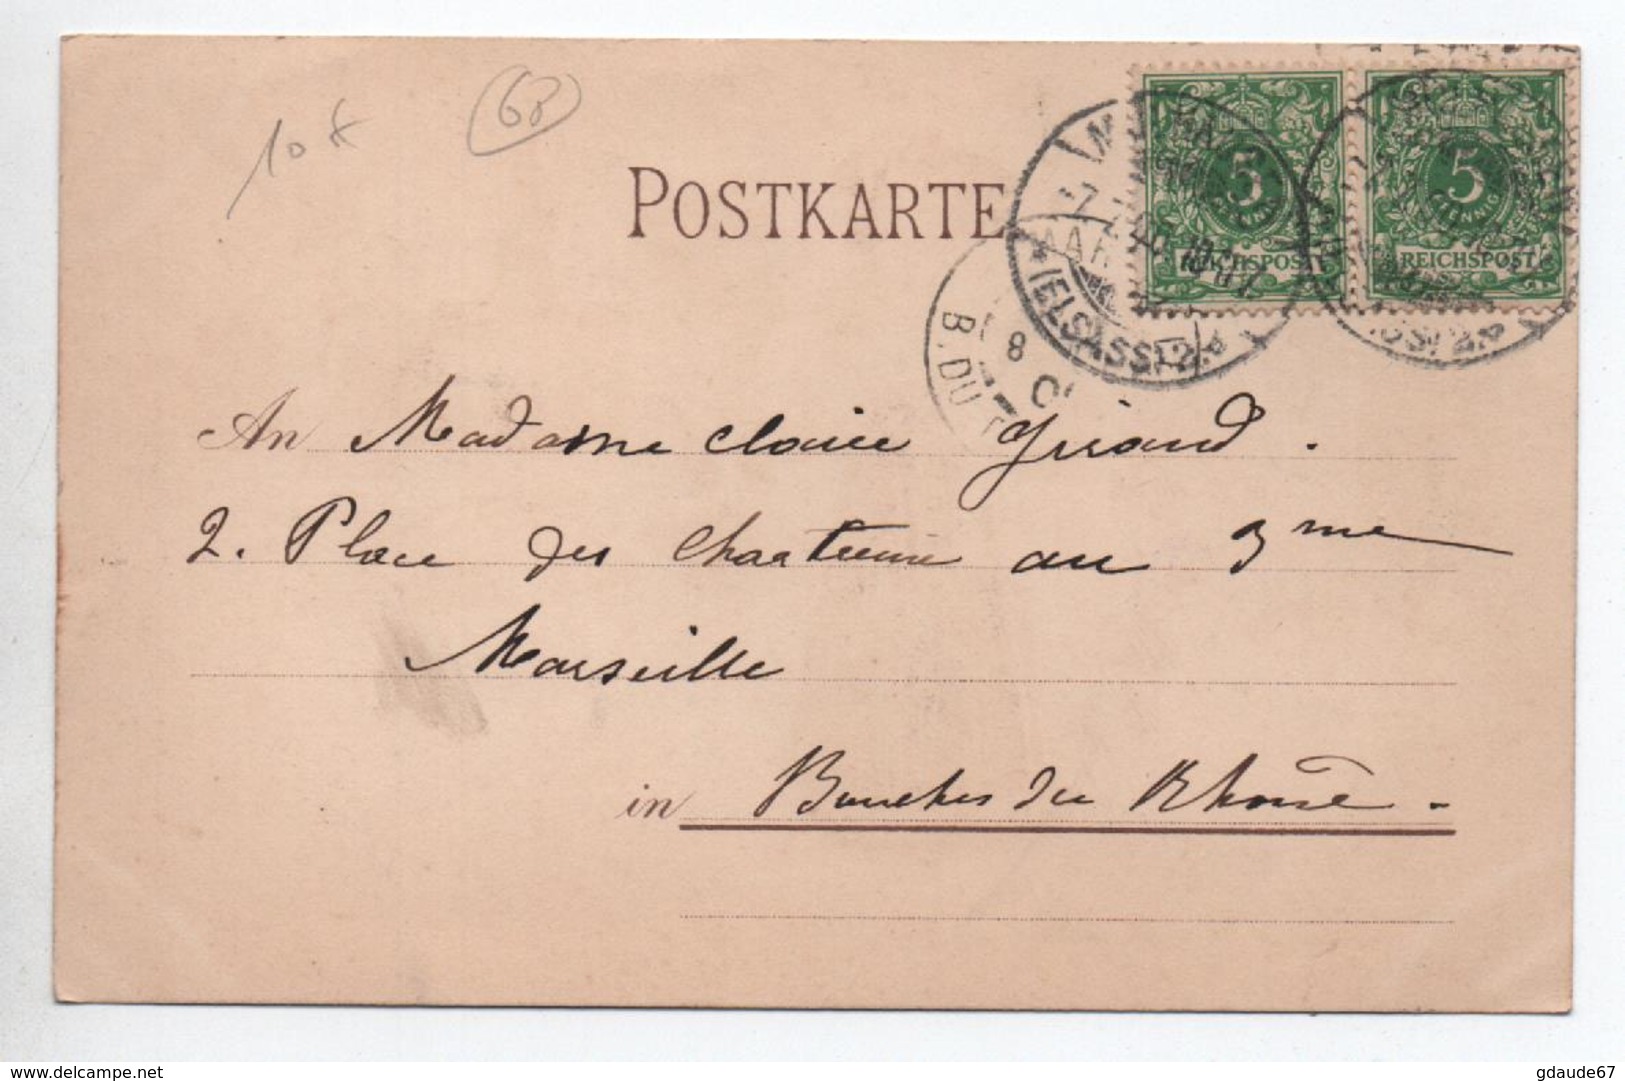 10 €
68
POSTKARTE
5
PFENNIG
REICHSPOST
5
PFENNIG
REICHSPOST
(ELSASS) 2
8
B. DU
An Madame Claire Girand.
2. Place des Chartreux au 3me
Marseille
in Bouches du Rhône.
www.delcampe.net
gdaude67